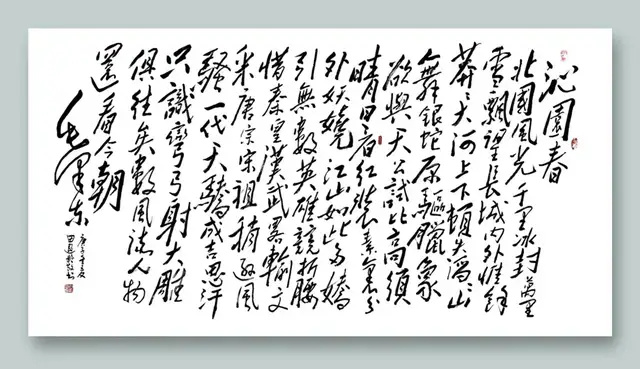 沁園春
北國風光千里冰封萬里
雪飄望長城內外惟餘
莽々大河上下頓失滔々山
舞銀蛇原驅臘象
欲與天公試比高須
晴日看紅裝素裹分
外妖嬈江山如此多嬌
引無數英雄競折腰
惜秦皇漢武略輸文
采唐宗宋祖稍遜風
騷一代天驕成吉思汗
只識彎弓射大雕
俱往矣數風流人物
還看今朝
毛澤東
庚子年夏